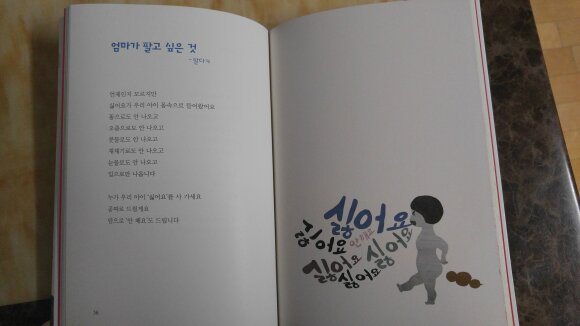 엄마가 팔고 싶은 것
언제인지 모르지만
싫어요가 우리 아이 몸속으로 들어왔어요
똥으로도 안 나오고
오줌으로도 안 나오고
콧물로도 안 나오고
재채기로도 안 나오고
눈물로도 안 나오고
입으로만 나옵니다
누가 우리 아이 '싫어요'를 사 가세요
공짜로 드릴게요
덤으로 '안 해요'도 드립니다
56
싫어요
싫어요
싫어요
싫어요
싫어요